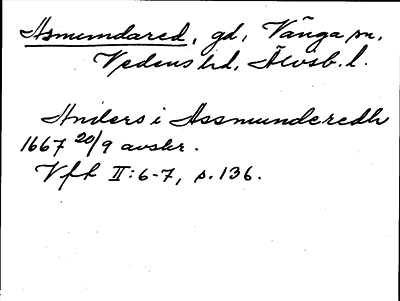 Asmundared, gd, Vånga sn,
Vedens hd, Älvsb. l.
Anders i Assmunderedh
1667 20/9 avskr.
Vfh II:6-7, s. 136.